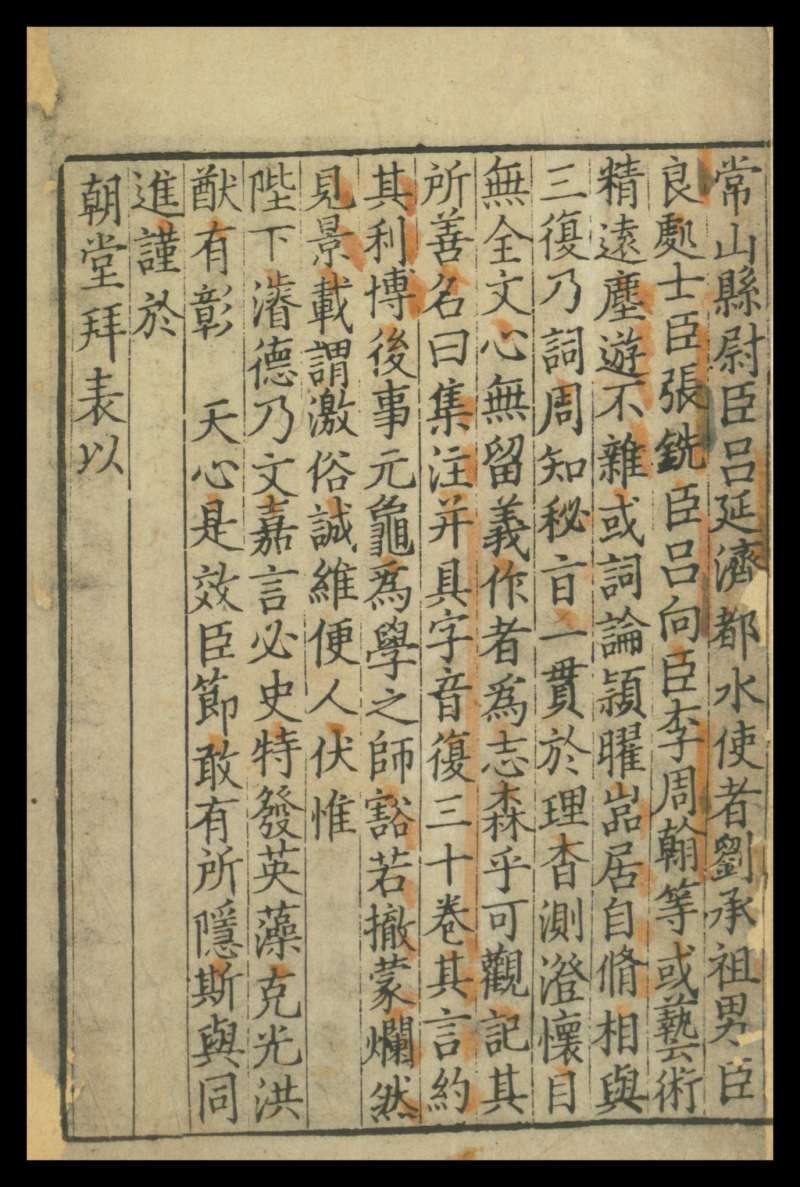 常山縣尉臣呂延濟都水使者劉承祖男臣
良處士臣張銑臣呂向臣李周翰等或藝術
精遠塵遊不雜或詞論穎曜嵓居自脩相與
三復乃詞周知秘旨一貫於理杳測澄懷目
無全文心無留義作者爲志森乎可觀記其
所善名曰集注并具字音復三十卷其言約
其利博後事元龜爲學之師豁若撤蒙爛然
見景載謂激俗誠維便人伏惟
陛下濬德乃文嘉言必史特發英藻克光洪
猷有彰　天心是效臣節敢有所隱斯與同
進謹於
朝堂拜表以